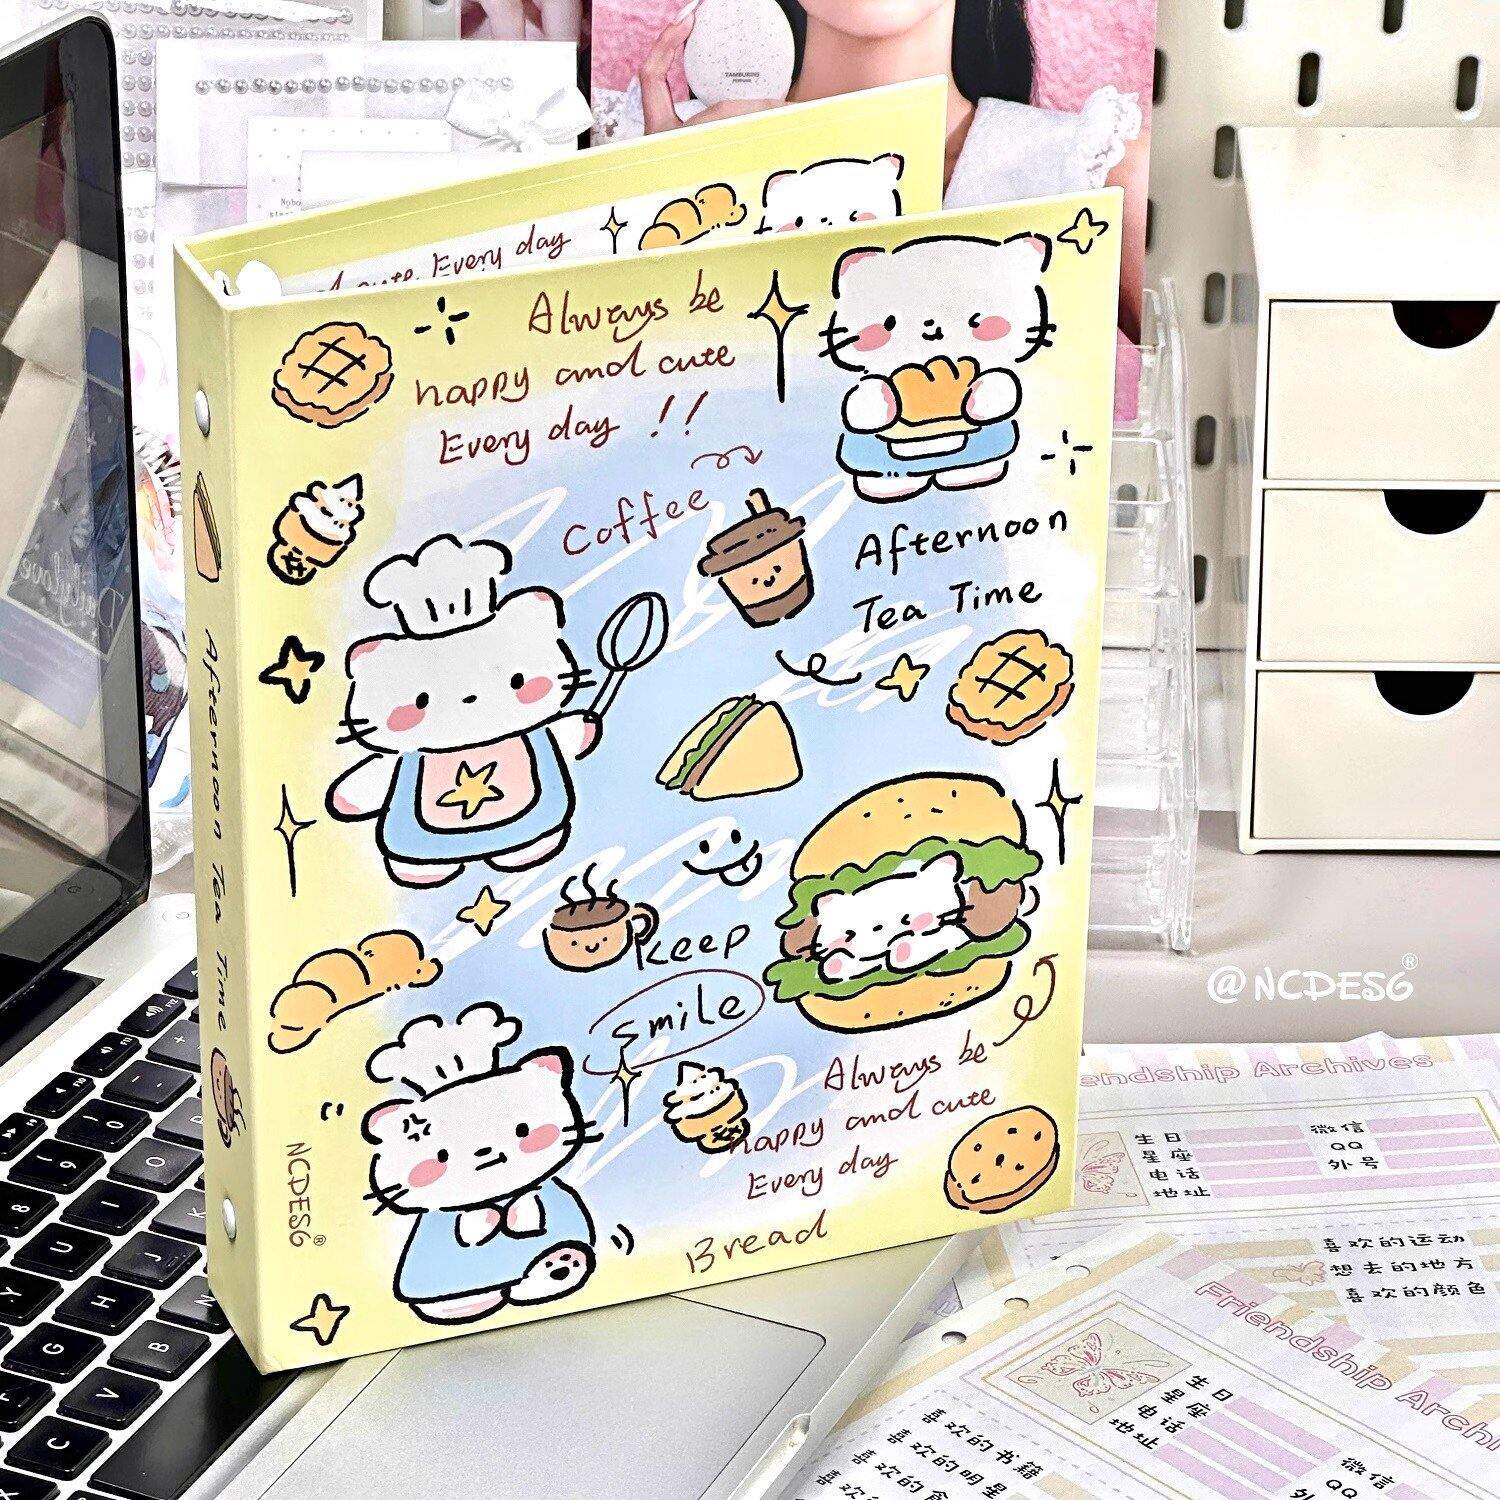 TAMBURINS
PERFUME
Every day
Always be
happy and cute
Every day !!
Coffee
Afternoon
Tea Time
Keep
smile
Always be
happy and cute
Every day
Bread
Afternoon Tea Time
NCDESG®
@NCDESG®
Friendship Archives
生日
星座
电话
地址
微信
QQ
外号
喜欢的运动
想去的地方
喜欢的颜色
Friendship
生日
星座
电话
地址
微信
QQ
喜欢的书籍
喜欢的明星